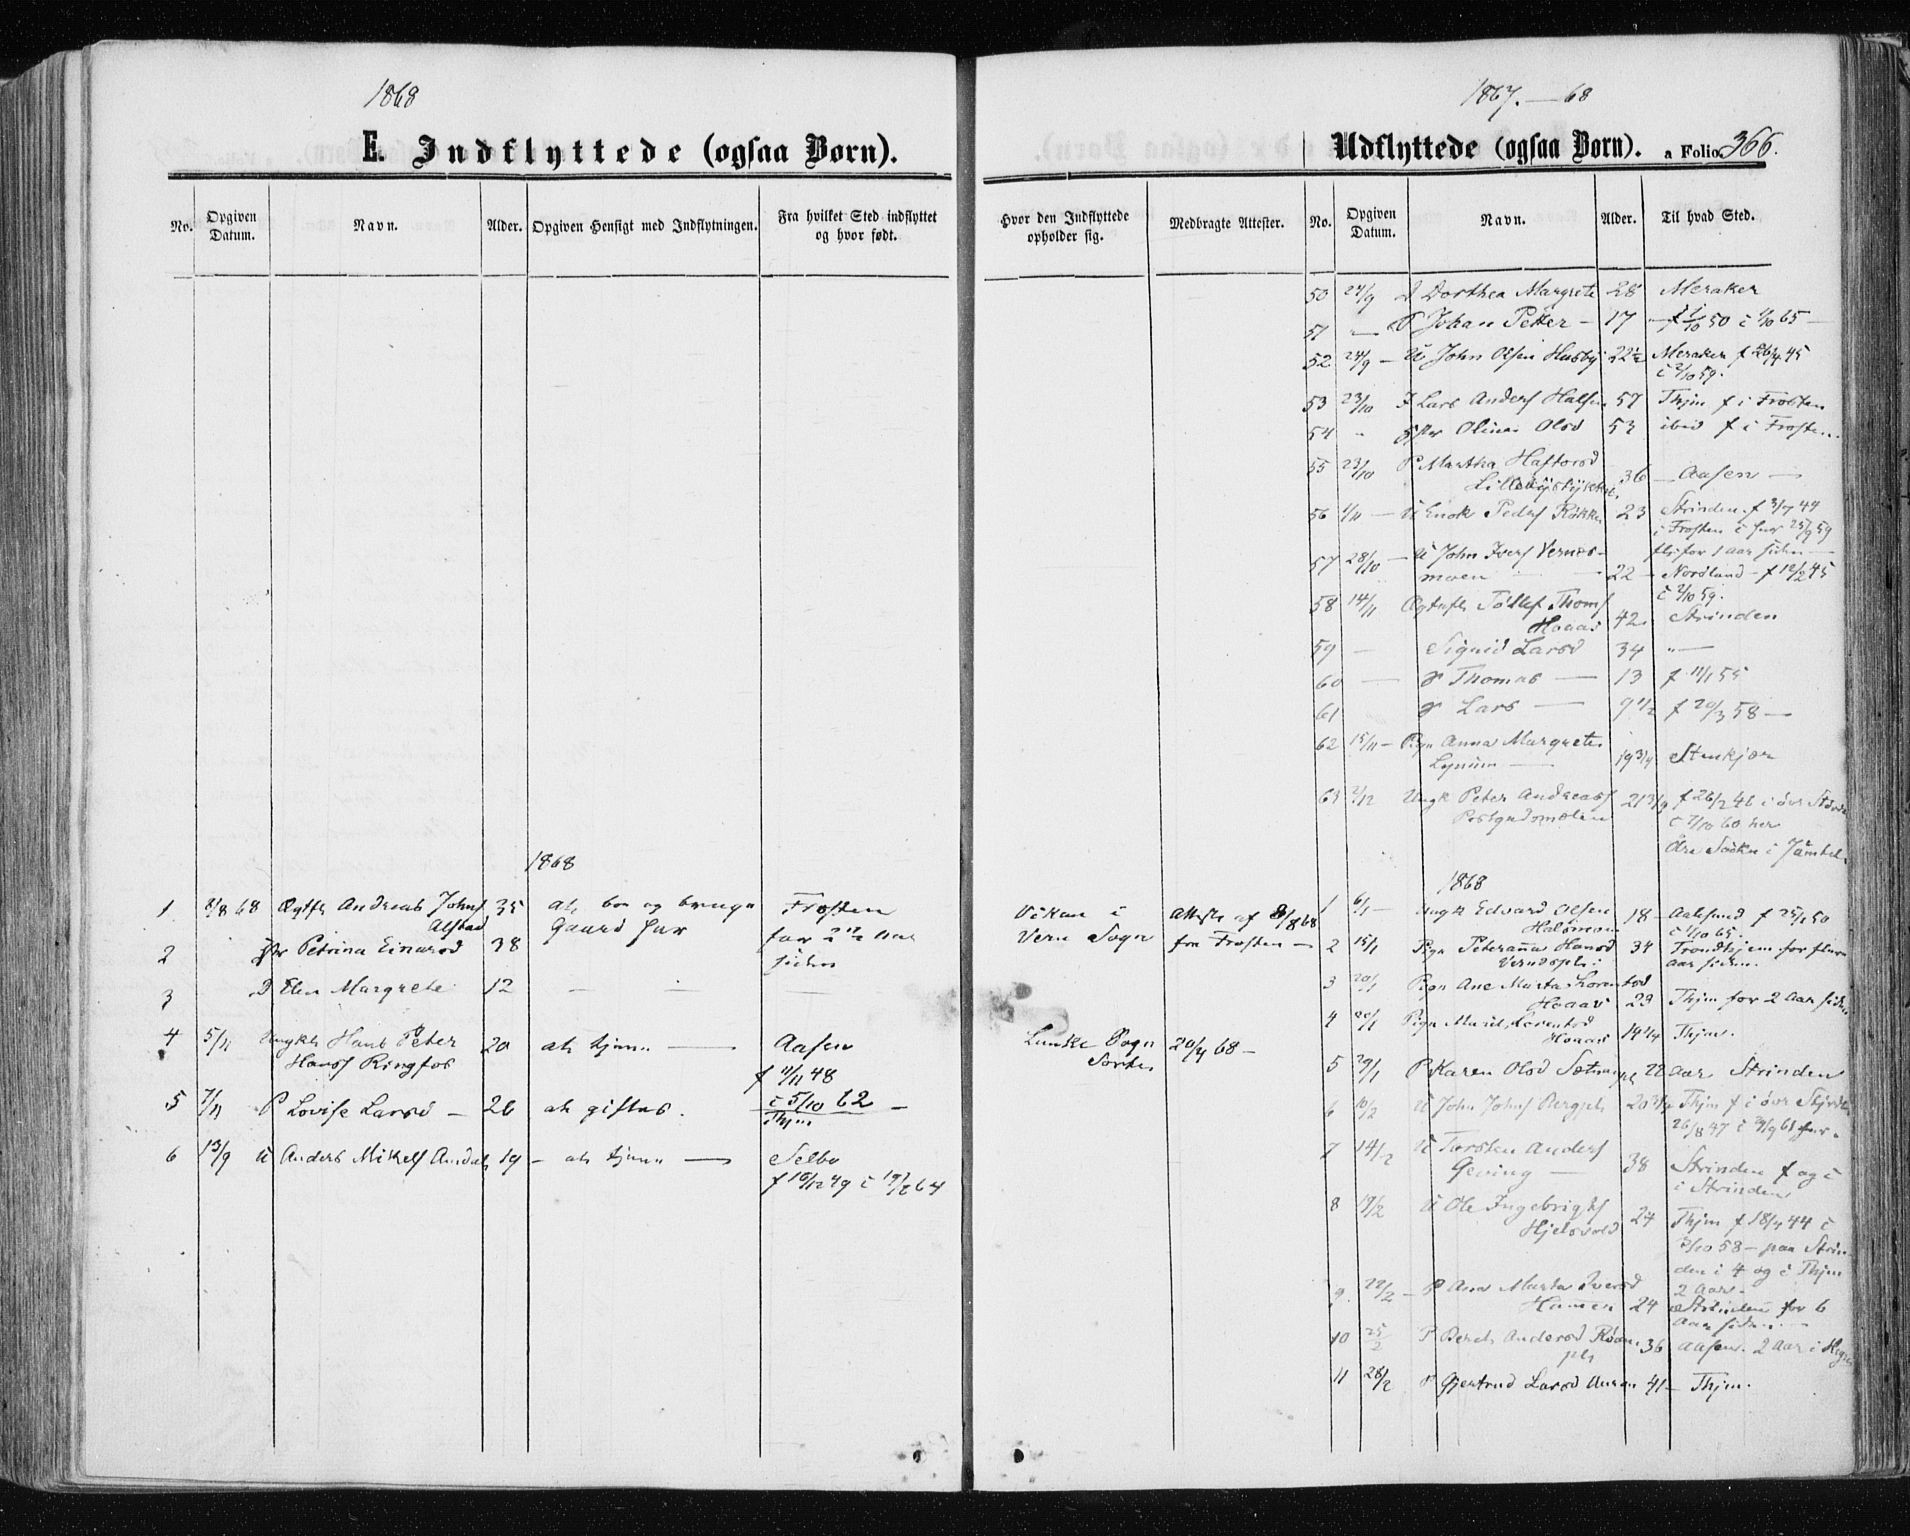 1868
E. Indflyttede (ogsaa Børn).
No.
Opgiven Datum.
Navn.
Alder.
Opgiven Hensigt med Indflytningen.
Fra hvilket Sted indflyttet og hvor født.
1868
1 8/8 68 Andreas Johns 35 at boe og bruge Frosten
Alstad Gaard her
2 Petrina Einarsd 38 for 2 1/2 Aar
siden
3 D Elen Margrete 12 — — —
4 5/11 Ungkl Hans Peter 20 at tjene — Aasen
Hanss Ringfos f 11/11 48
5 7/11 P Lovise Larsd — 26 at giftes. c 5/10 62 —
Thjm
6 13/9 U Anders Mikels 19 — at tjene — Selbo
f 16/12 49 c 64
1867. — 68
Udflyttede (ogsaa Børn). a Folio 366.
Hvor den Indflyttede opholder sig.
Medbragte Attester.
No.
Opgiven Datum.
Navn.
Alder.
Til hvad Sted.
50 24/9 D Dorthea Margrete 28 Meraker
51 — Johan Petter — 17 — f 1/10 50 c 1/10 65 —
52 24/9 — U John Olsen Husby 22 1/2 Meraker f 26/4 45
c 2/10 59.
53 23/10 I Lars Anders Halsen 57 Thjm f i Frosten
54 " Olina Olsd 53 ibid f i Frosten.
55 23/10 P Martha Haftorsd
36 — Aasen —
56 1/11 — U Enok Peders Røkke 23 Strinden f 3/7 44
i Frosten c her 25/9 59
fl. for 1 aar siden —
57 28/10 — U John Ivers Vernes-
moen 22 — Nordland — f 12/2 45
c 2/10 59.
58 14/11 Thoms
Hoaas 42 Strinden
59 — Sigrid Larsd 34 " —
60 — Thomas — 13 f 11/1 55
61 Lars — 9 1/2 f 20/3 58 —
62 15/11 — Pign Anna Margrete
Lynum — 19 3/4 Stenkjær
63 2/12 Ungk Peter Andreass 21 3/4 f 26/2 46 i
c 7/10 60 her
i
1868
Vikan i Attest af 8/8 68
Vern Sogn fra Frosten —
1 6/1 — Ungk Edvard Olsen 18 — Aalesund f 25/1 50
Halsmoen c 1/10 65.
2 15/1 Pign Peteranna Hansd 34 Trondhjem for flere
aar siden.
3 20/1 Pign Ane Marta Lorentsd
Hoaas 23 Thjm for 2 Aar siden
Lunke Sogn 20/4 68 —
4 20/1 Pign Marit Lorentsd
Hoaas 19 1/4 Thjm.
5 29/1 P Karen Olsd 22 aar Strinden
6 10/2 U John Johns Bergpl 20 3/4 Thjm f i
26/8 47 c 3/9 61 her.
7 14/2 U Torsten Anders
Geving — 38 Strinden f og c
i Strinden
8 19/2 U Ole Ingebrigts
Hjelsvold 24 Thjm f 18/4 44 c
2/10 58 — paa Strin-
den i 4 og i Thjm
2 Aar.
9 22/2 — P Ane Marta Iversd
24 Strinden for 6
Aar siden. —
10 25/2 P Bereth Andersd
pl 36 Aasen. 2 Aar i
11 28/2 P Gjertrud Larsd 41 — Thjm.